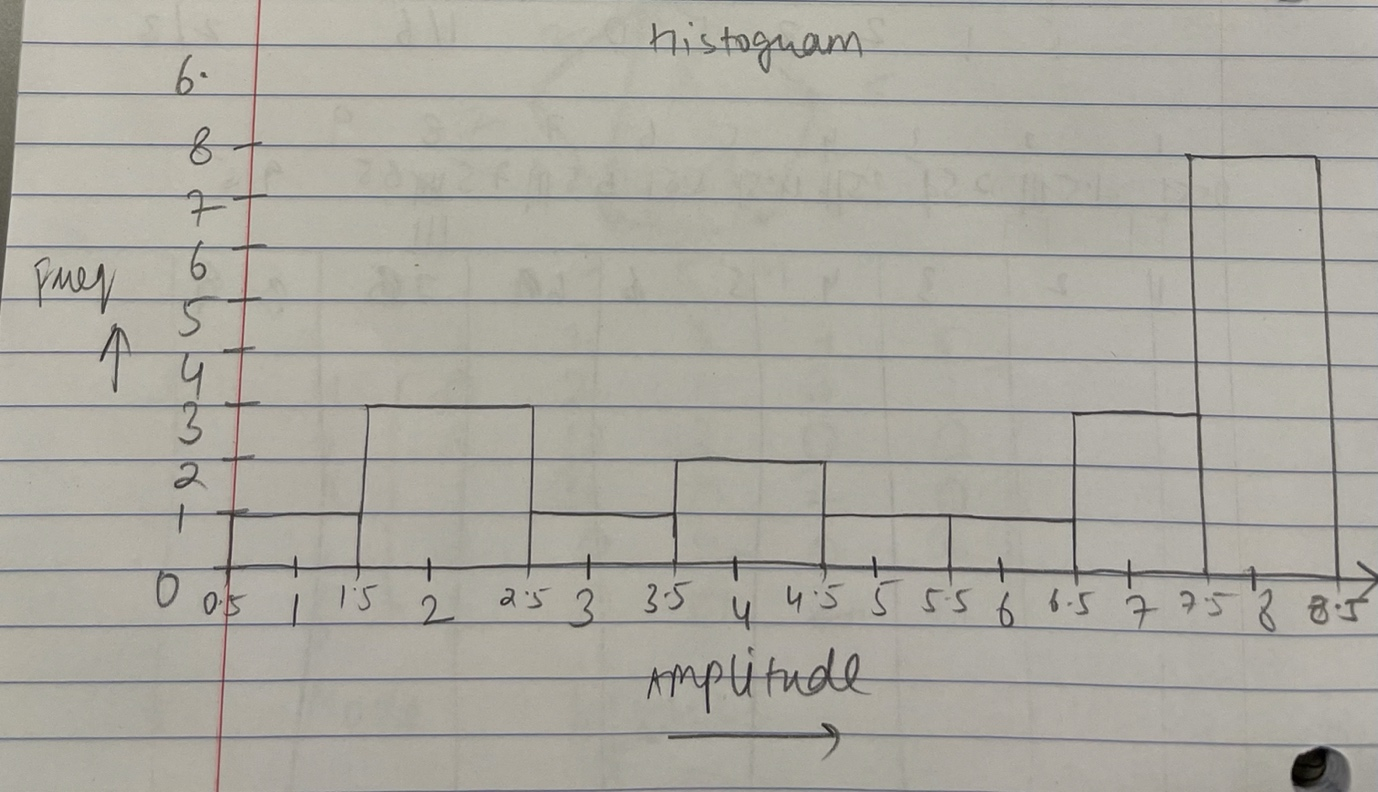 histogram
6.
8
7
6
Freq
5
4
3
2
1
0
0.5 1 1.5 2 2.5 3 3.5 4 4.5 5 5.5 6 6.5 7 7.5 8 8.5
Amplitude